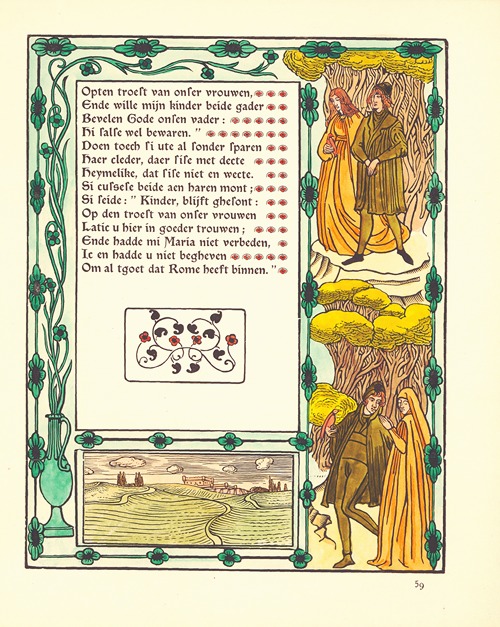 Opten troest van onser vrouwen,
Ende wille mijn kinder beide gader
Bevelen Gode onsen vader :
Hi salse wel bewaren. ”
Doen toech si ute al sonder sparen
Haer cleder, daer sise met decte
Heymelike, dat sise niet en wecte.
Si cussese beide aen haren mont ;
Si seide : ” Kinder, blijft ghesont :
Op den troest van onser vrouwen
Latic u hier in goeder trouwen ;
Ende hadde mi Maria niet verbeden,
Ic en hadde u niet begheven
Om al tgoet dat Rome heeft binnen. ”
59